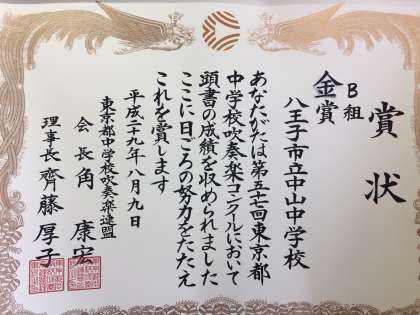 賞状
B組
金賞
八王子市立中山中学校
あなたがたは第五十七回東京都
中学校吹奏楽コンクールにおいて
頭書の成績を収められました
ここに日ごろの努力をたたえ
これを賞します
平成二十九年八月九日
東京都中学校吹奏楽連盟
会長 角 康宏
理事長 齊藤厚子